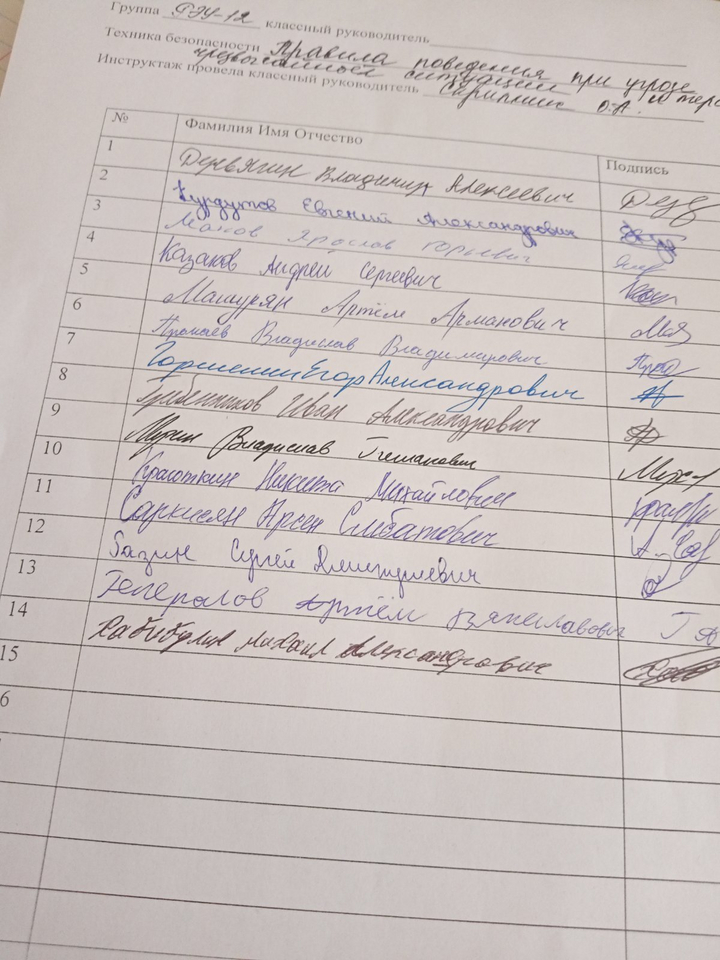 Группа РЭУ-12 классный руководитель
Техника безопасности Правила поведения при угрозе
чрезвычайной ситуации и тер
Инструктаж провела классный руководитель О.А.
№ Фамилия Имя Отчество Подпись
1 Дерявягин Владимир Алексеевич
2 Курдутов Евгений Александрович
3 Манов Ярослав Юрьевич
4 Казаков Андрей Сергеевич
5 Машурян Артём Арманович
6 Владислав Владимирович
7 Егор Александрович
8 Гребенников Иван Александрович
9 Мурин Владислав
10 Красоткин Никита Михайлович
11 Саркисян Арсен Смбатович
12 Базин Сергей
13 Генералов Артём Вячеславович
14 Хабибулин Михаил Александрович
15
6